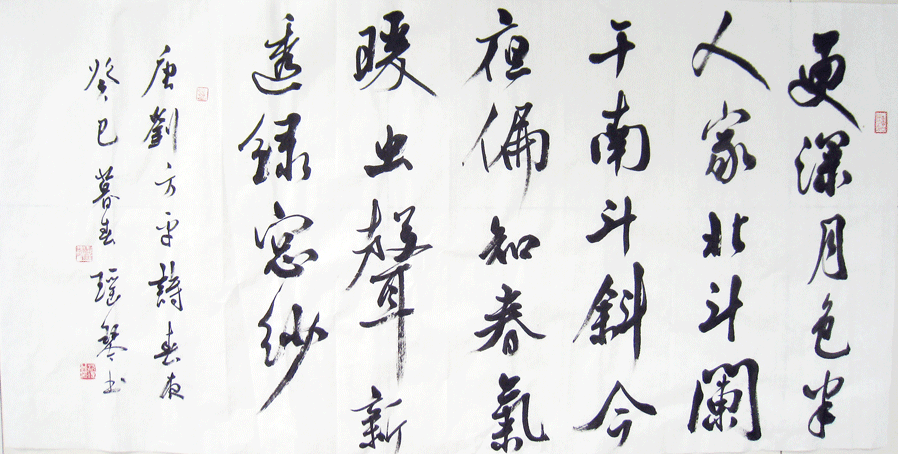 更深月色半
人家北斗闌
干南斗斜今
夜偏知春氣
暖虫聲新
透録窓紗
唐劉方平詩春夜
癸巳暮春瑶琴书